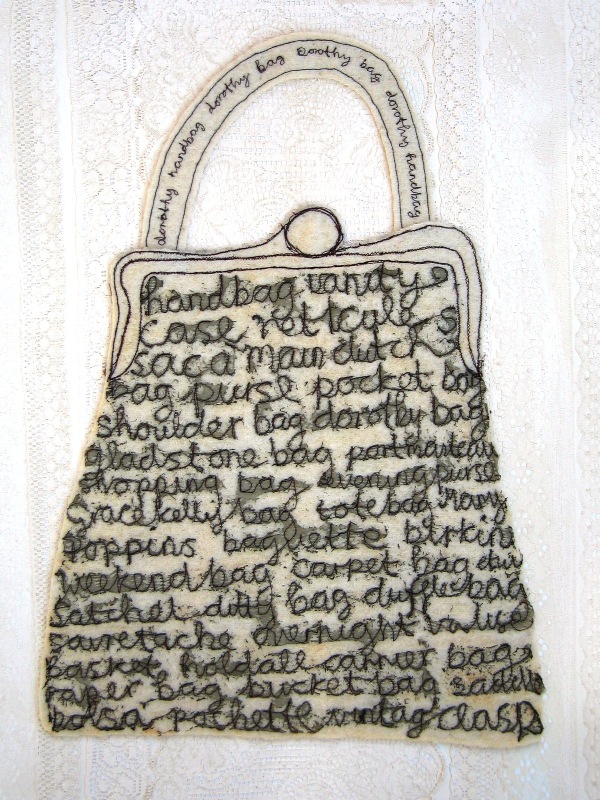 dorothy handbag dorothy bag dorothy bag dorothy handbag
handbag vanity
case reticule
saca main dutch
bag purse pocket bag
shoulder bag dorothy bag
gladstone bag portmanteau
shopping bag evening purse
Grace kelly bag tote bag Mary
Poppins baguette birkin
weekend bag carpet bag
satchel ditty bag duffle bag
savretache overnight valise
basket holdall carrier bag
paper bag bucket bag saddle
bolsa pochette vintag clasp